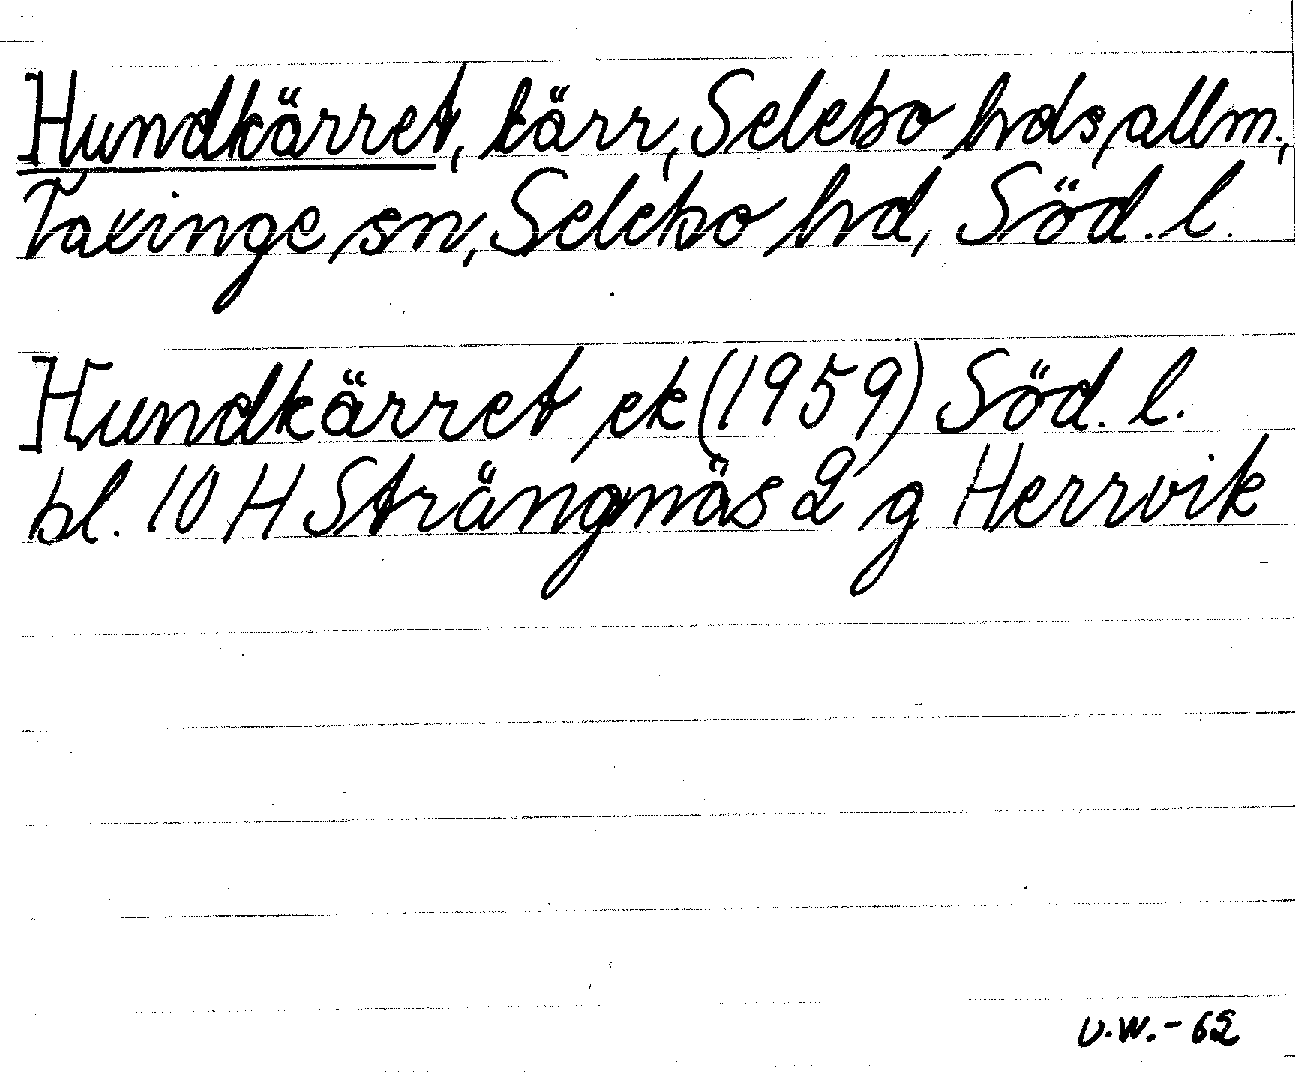 Hundkärret, kärr, Selebo hds allm.,
Taxinge sn, Selebo hd, Söd. l.
Hundkärret ek (1959) Söd. l.
bl. 10 H Strängnäs 2 g Herrvik
U.W.-62